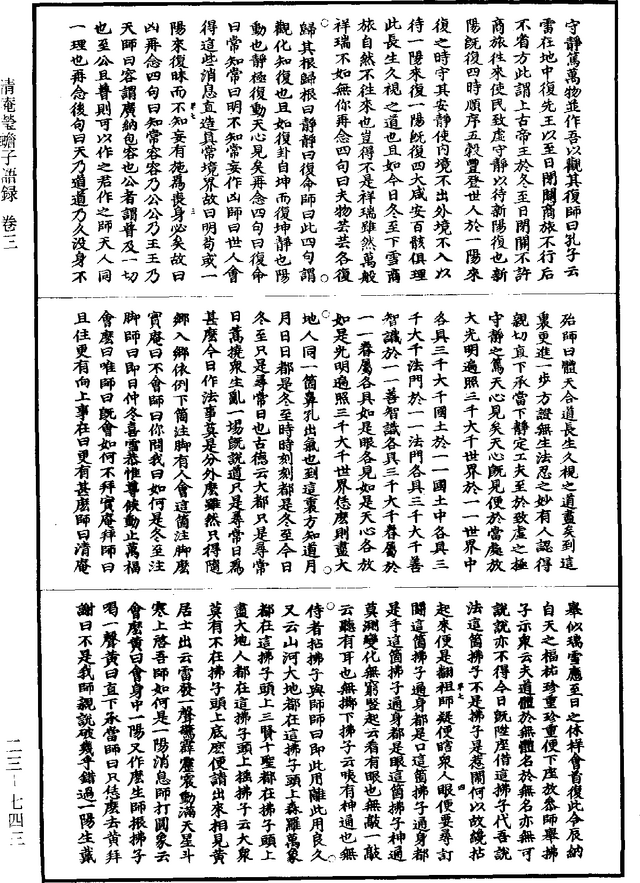 守靜篤萬物並作吾以觀其復師曰孔子云
雷在地中復先王以至日閉關商旅不行后
不省方此謂上古帝王於冬至日閉關不許
商旅往來使民致虛守靜以待新陽復也新
陽既復四時順序五穀豐登世人於一陽來
復之時守其安靜使內境不出外境不入以
待一陽來復一陽既復四大咸安百骸俱理
此長生久視之道也且如今日冬至下雪商
旅自然不往來也豈得不是祥瑞雖然萬般
祥瑞不如無你再念四句曰夫物芸芸各復
歸其根歸根曰靜靜曰復命師曰此四句謂
觀化知復也且如復卦自坤而復坤靜也陽
動也靜極復動天心見矣再念四句曰復命
曰常知常曰明不知常妄作凶師曰世人會
得這些消息直造真常境界故曰明苟或一
陽來復昧而不知妄有施為喪身必矣故曰
凶再念四句曰知常容容乃公公乃王王乃
天師曰容謂廣納包容也公者謂普及一切
也至公且普則可以作之君作之師天人同
一理也再念後句曰天乃道道乃久沒身不
殆師曰體天合道長生久視之道盡矣到這
裏更進一步方證無生法忍之妙有人認得
親切直下承當下靜定工夫至於致虛之極
守靜之篤天心見矣天心既見便於當處放
大光明遍照三千大千世界於一一世界中
各具三千大千國土於一一國土中各具三
千大千法門於一一法門各具三千大千善
智識於一一善智識各具三千大千眷屬於
一一眷屬各具如是眼各見如是天心各放
如是光明遍照三千大千世界恁麼則盡大
地人同一箇鼻孔出氣也到這裏方知道月
月日日都是冬至時時刻刻都是冬至今日
冬至只是尋常日也古德云大都只是尋常
日驀撓眾生亂一場既說道只是尋常日為
甚麼今日作法事莫是分外麼雖然只得隨
鄉入鄉依例下箇注腳有人會這箇注腳麼
實庵曰不會師曰你問我曰如何是冬至注
腳師曰即日仲冬喜雪恭惟尊候動止萬福
會麼曰唯師曰既會如何不拜實庵拜師曰
且住更有向上事在曰更有甚麼師曰清庵
舉似瑞雪應至日之休祥會首復此令辰納
自天之福祐珍重珍重便下座放參師舉拂
子示眾云夫道體於無體名於無名亦無可
說說亦不得今日既陞座借這拂子代吾說
法這箇拂子不是拂子是惹鬧何以故纔拈
起來便是翻祖師疑便瞎眾人眼便要尋訂
鬪這箇拂子遍身都是口這箇拂子遍身都
是手這箇拂子遍身都是眼這箇拂子神通
莫測變化無窮豎起云看有眼也無敲一敲
云聽有耳也無擲下拂子云唉有神通也無
侍者拈拂子與師師曰即此用離此用良久
又云山河大地都在這拂子頭上森羅萬象
都在這拂子頭上三賢十聖都在拂子頭上
盡大地人都在這拂子頭上搖拂子云大眾
莫有不在拂子頭上底麼便請出來相見黃
居士出云雷發一聲礔靂震動滿天星斗
寒上啓吾師如何是一陽消息師打圓象云
會麼黃曰會身中一陽又作麼生師振拂子
喝一聲黃曰直下承當師曰只恁麼去黃拜
謝曰不是我師親說破幾乎錯過一陽生戴
清庵瑩蟾子語錄 卷三
二三－七四三